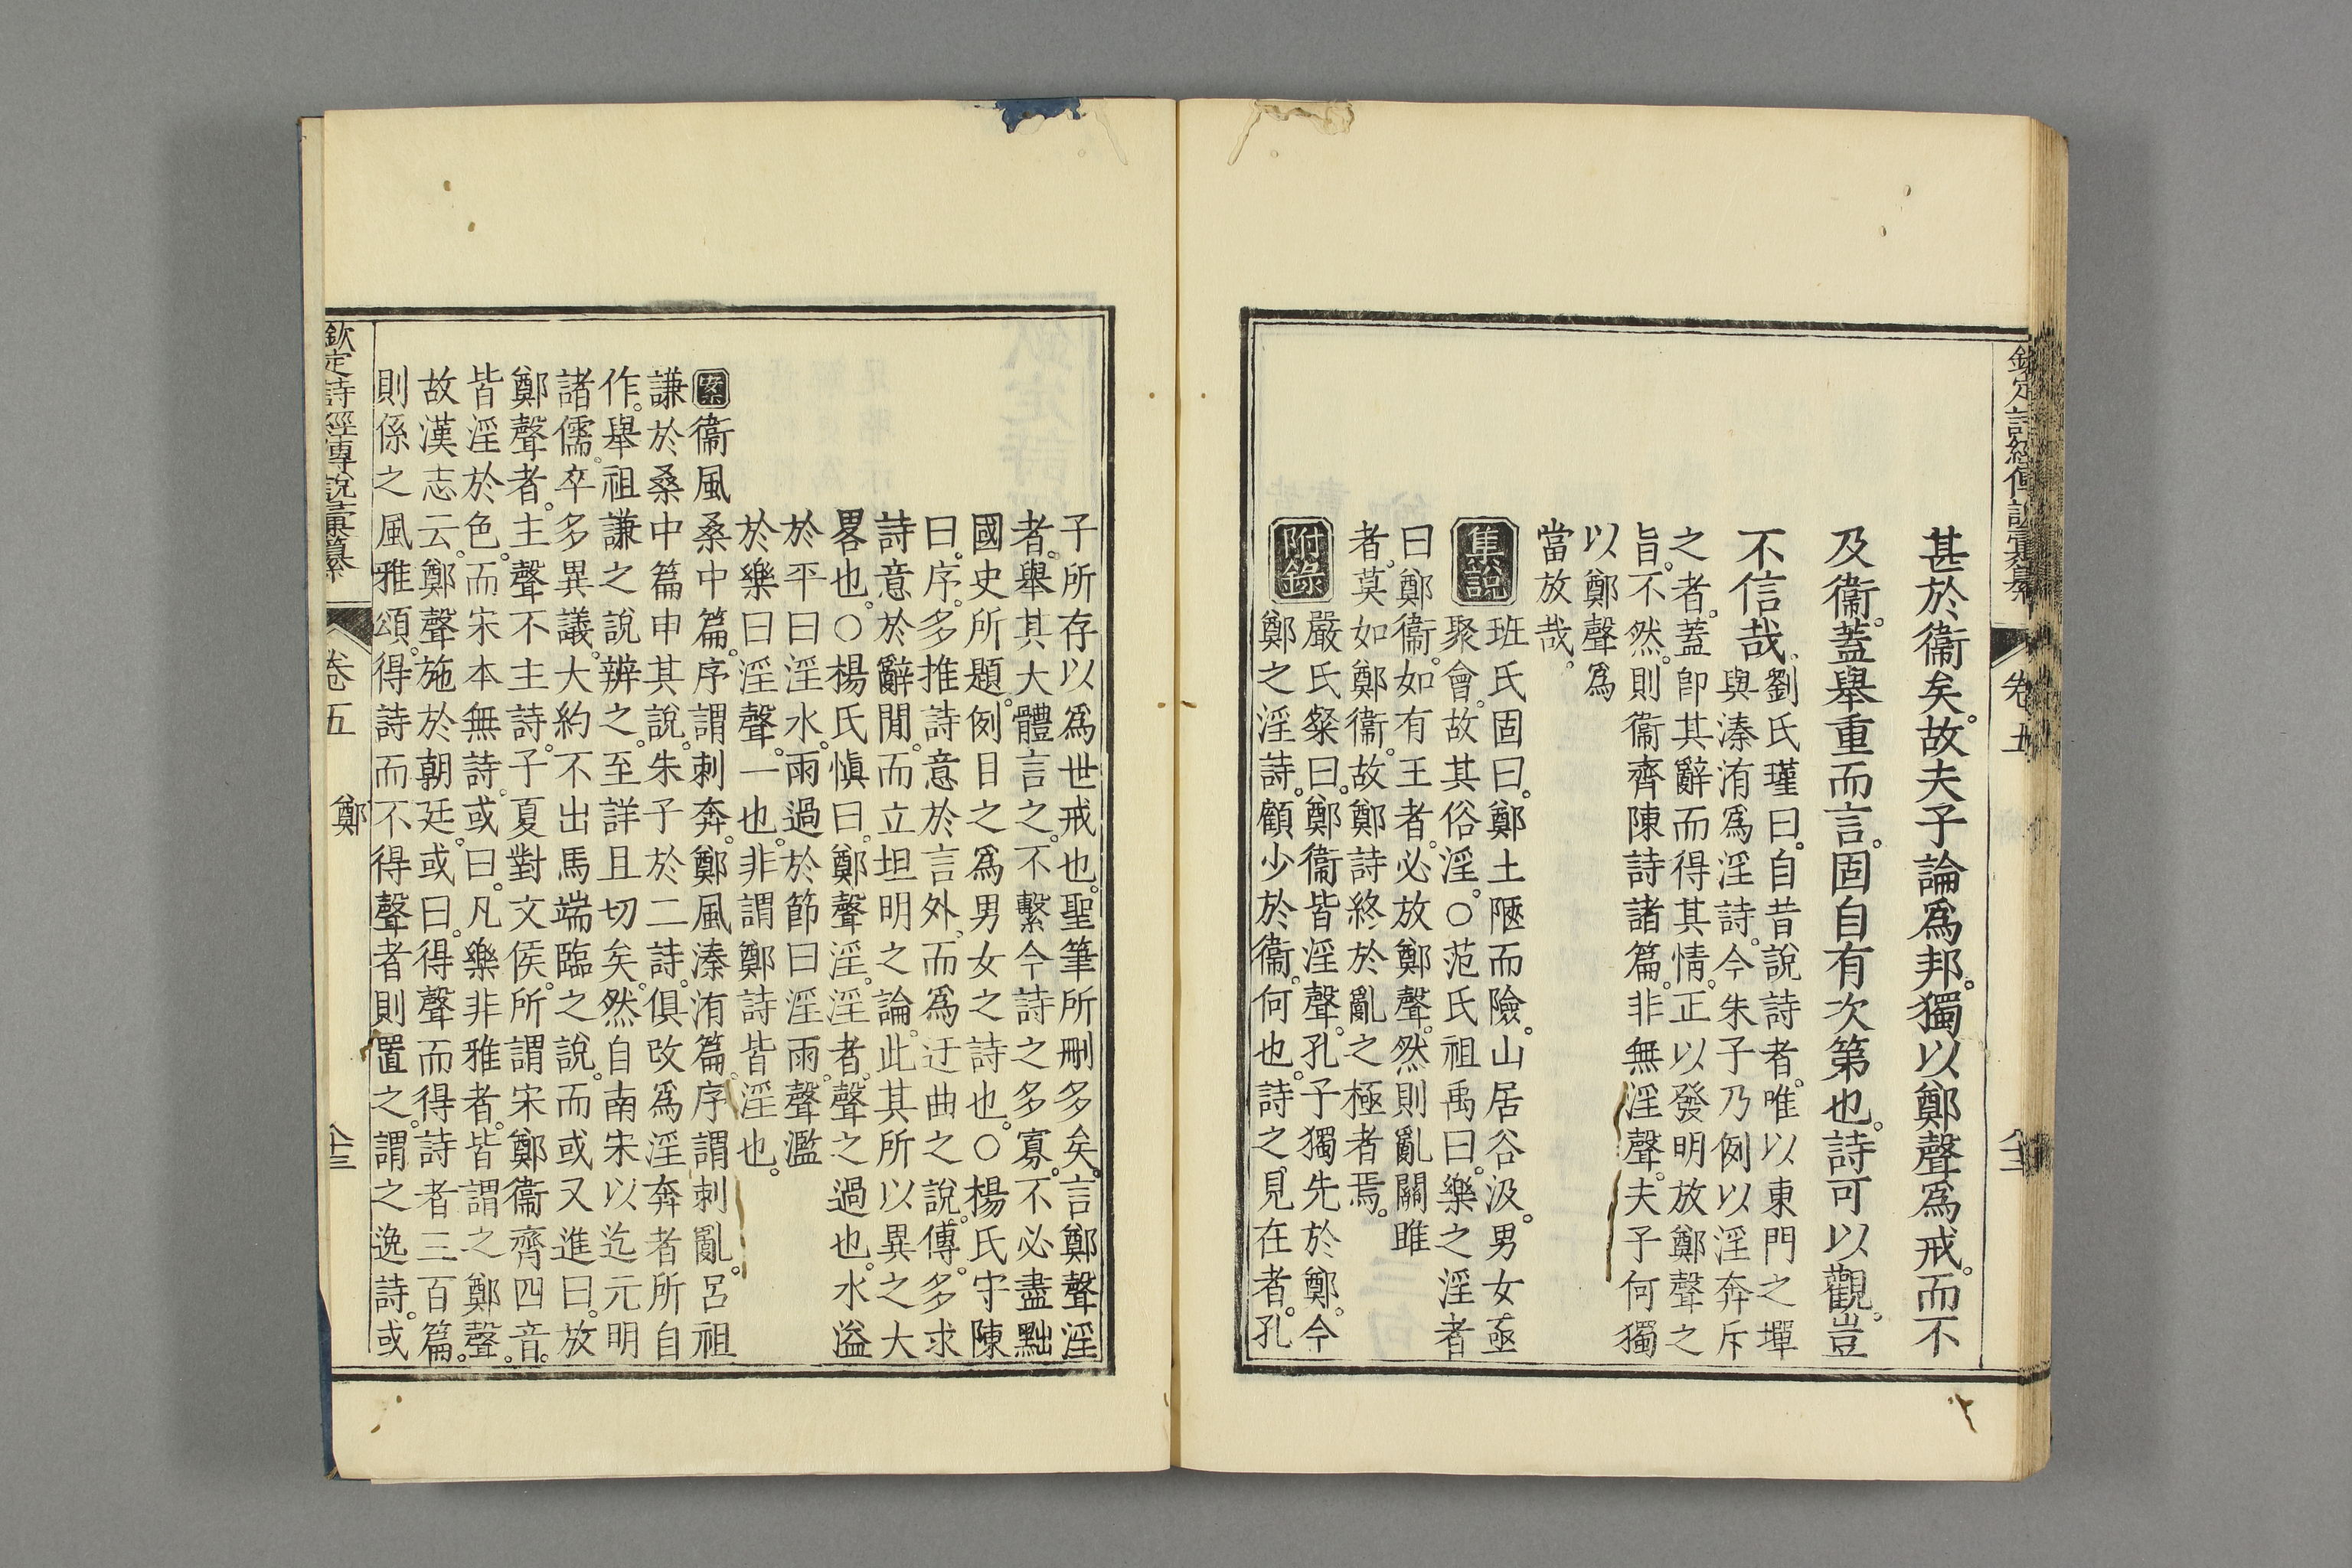 欽定詩經傳說彙纂 卷五
甚於衞矣。故夫子論爲邦。獨以鄭聲爲戒。而不
及衞。蓋舉重而言。固自有次第也。詩可以觀。豈
不信哉。
劉氏瑾曰。自昔說詩者。唯以東門之墠
與溱洧爲淫詩。今朱子乃例以淫奔斥
之者。蓋卽其辭而得其情。正以發明放鄭聲之
旨。不然。則衞齊陳詩諸篇。非無淫聲。夫子何獨
以鄭聲爲
當放哉。
集說
班氏固曰。鄭土陿而險。山居谷汲。男女亟
聚會。故其俗淫。○范氏祖禹曰。樂之淫者
曰鄭衞。如有王者。必放鄭聲。然則亂關雎
者。莫如鄭衞。故鄭詩終於亂之極者焉。
附錄
嚴氏粲曰。鄭衞皆淫聲。孔子獨先於鄭。今
鄭之淫詩。顧少於衞。何也。詩之見在者。孔
子所存以爲世戒也。聖筆所刪多矣。言鄭聲淫
者。舉其大體言之。不繫今詩之多寡。不必盡黜
國史所題。例目之爲男女之詩也。○楊氏守陳
曰。序。多推詩意於言外。而爲迂曲之說。傳。多求
詩意於辭閒。而立坦明之論。此其所以異之大
畧也。○楊氏愼曰。鄭聲淫。淫者。聲之過也。水溢
於平曰淫水。雨過於節曰淫雨。聲濫
於樂曰淫聲。一也。非謂鄭詩皆淫也。
案 衞風桑中篇。序謂刺奔。鄭風溱洧篇。序謂刺亂。呂祖
謙於桑中篇申其說。朱子於二詩。俱改爲淫奔者所自
作。舉祖謙之說辨之。至詳且切矣。然自南宋以迄元明
諸儒。卒多異議。大約不出馬端臨之說。而或又進曰。放
鄭聲者。主聲不主詩。子夏對文侯。所謂宋鄭衞齊四音。
皆淫於色。而宋本無詩。或曰。凡樂非雅者。皆謂之鄭聲。
故漢志云。鄭聲施於朝廷。或曰。得聲而得詩者三百篇。
則係之風雅頌。得詩而不得聲者則置之。謂之逸詩。或
欽定詩經傳說彙纂 卷五 鄭 八十三